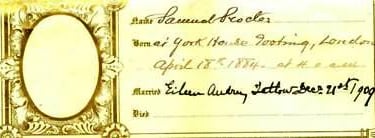 Name Samuel Procter
Born at York House Tooting, London
April 18th 1884. at 4.0 a.m.
Married Eileen Audrey Tatlow Decr 21st/1909
Died